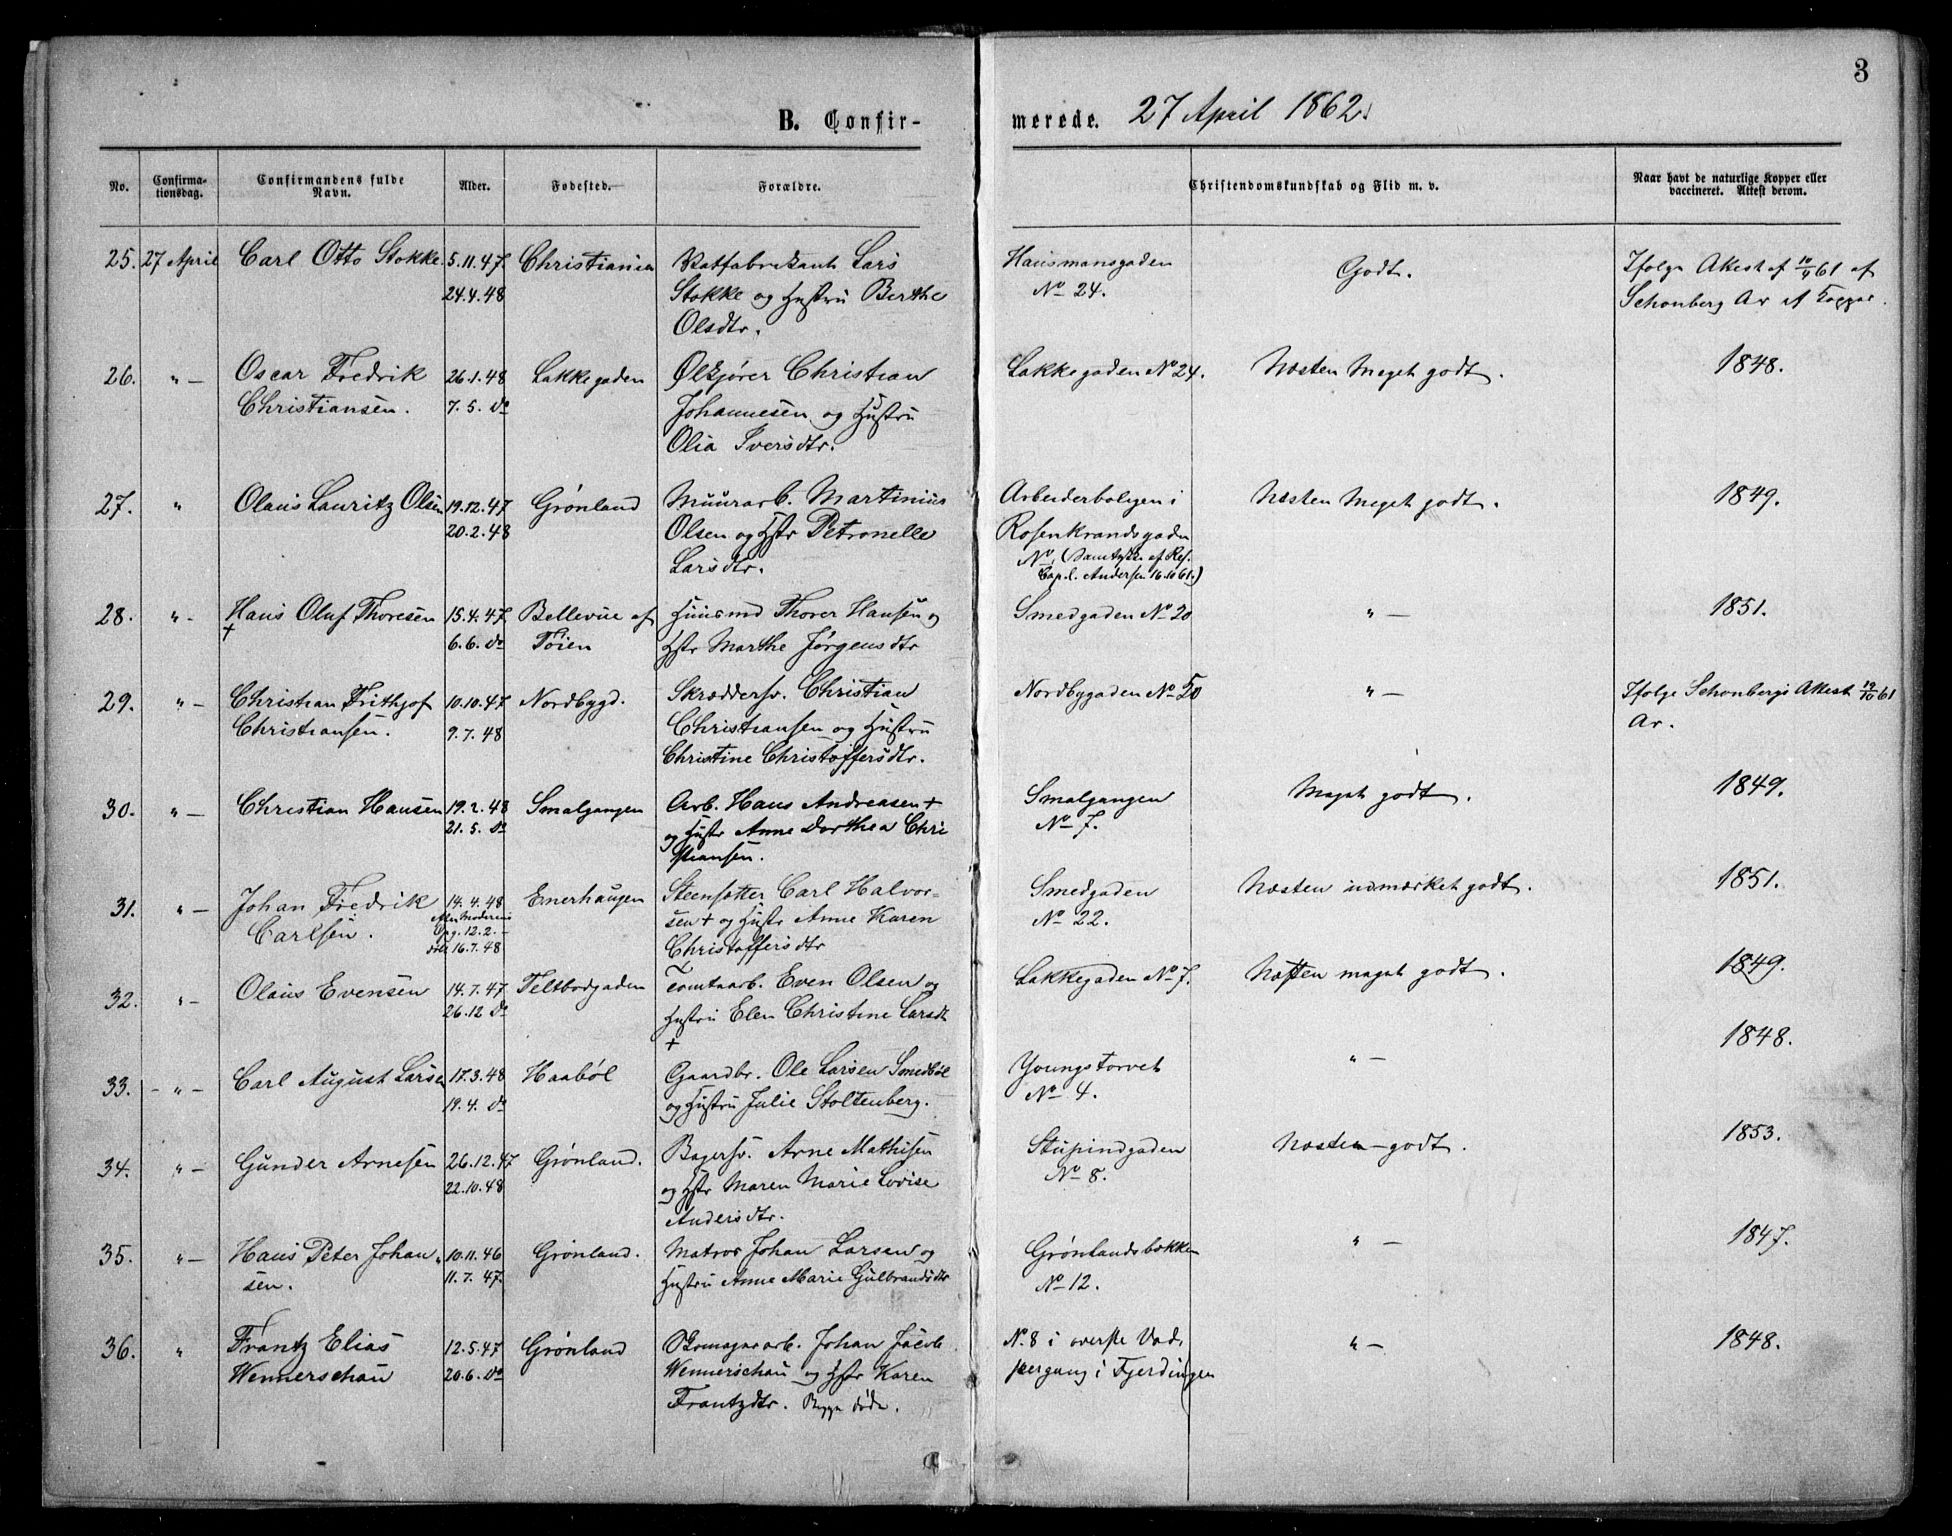 3
B. Confirmerede. 27 April 1862.
No. Confirmationsdag. Confirmandens fulde Navn. Alder. Fødested. Forældre. Christendomskundskab og Flid m. v. Naar havt de naturlige Kopper eller vaccineret. Attest derom.
25. 27 April Carl Otto Stokke 5.11.47 Christiania Lars Hausmansgaden Godt. Ifølge Attest af 61 af
24.4.48 Stokke og Hustru Berthe No 24. Schonberg Ar af Kopper.
Olsdtr.
26. " — Oscar Fredrik 26.1.48 Lakkegaden Ølkjører Christian Lakkegaden No 24. Næsten Meget godt. 1848.
Christiansen. 7.5. do Johannesen og Hustru
Olia Iversdtr.
27. " Olaus Lauritz Olsen 19.12.47 Grønland Muurarb. Martinius Arbeiderboligen i Næsten Meget godt. 1849.
20.2.48 Olsen og Hstr Petronelle Rosenkrandsgaden
Larsdtr. No (Samtykke af Res.
Cap. l. Andersen 16.10 61.)
28. " - Hans Oluf Thoresen 15.4.47 Bellevue af Huusmd Thorer Hansen og Smedgaden No 20 " — 1851.
+ 6.6. do Tøien Hstr Marthe Jørgensdtr
29. " — Christian Frithjof 10.10.47 Nordbygd. Skræddersv. Christian Nordbygaden No 50 " — Ifølge Schonbergs Attest 61
Christiansen. 9.7.48 Christiansen og Hustru Ar.
Christine Christoffersdtr.
30. " — Christian Hansen 19.2.48 Smalgangen Arb. Hans Andreasen + Smalgangen Meget godt. 1849.
21.5. do og Hustr Anne Dorthea Chri No 7.
stiansen.
31. " — Johan Fredrik 14.4.48 Enerhaugen Steensætter Carl Halvor- Smedgaden Næsten udmærket godt. 1851.
Carlsen. Efter Moderens sen + og Hustr Anne Karen No 22.
Opg. 12.2. — Christoffersdtr
døbt 16.7.48
32. " - Olaus Evensen 14.7.47 Feltbodgaden Tomtearb. Even Olsen og Lakkegaden No 7. Næsten meget godt. 1849.
26.12 do Hustru Elen Christine Larsdt
+
33. - " — Carl August Larsen 17.3.48 Haabøl Gaardbr. Ole Larsen Smedbøl Youngstorvet " — 1848.
19.4. do og Hustru Julie Stoltenberg. No 4.
34. " — Gunder Arnesen 26.12.47 Grønland. Bagersv. Arne Mathisen Stupindgaden Næsten godt. 1853.
22.10.48 og Hstr Maren Marie Lovise No 8.
Andersdtr.
35. " — Hans Peter Johan- 10.11.46 Grønland. Matros Johan Larsen og Grønlandsbækken " — 1847.
sen. 11.7.47 Hustru Anne Marie Gulbrandsdtr No 12.
36. " Frantz Elias 12.5.47 Grønland Skomagerarb. Johan Jacob N. 8 i øverste Vad, " — 1848.
Wennerschau 20.6. do Wennerschau og Hstr Karen pergang i Fjerdingen
Frantzdtr. Begge døde.